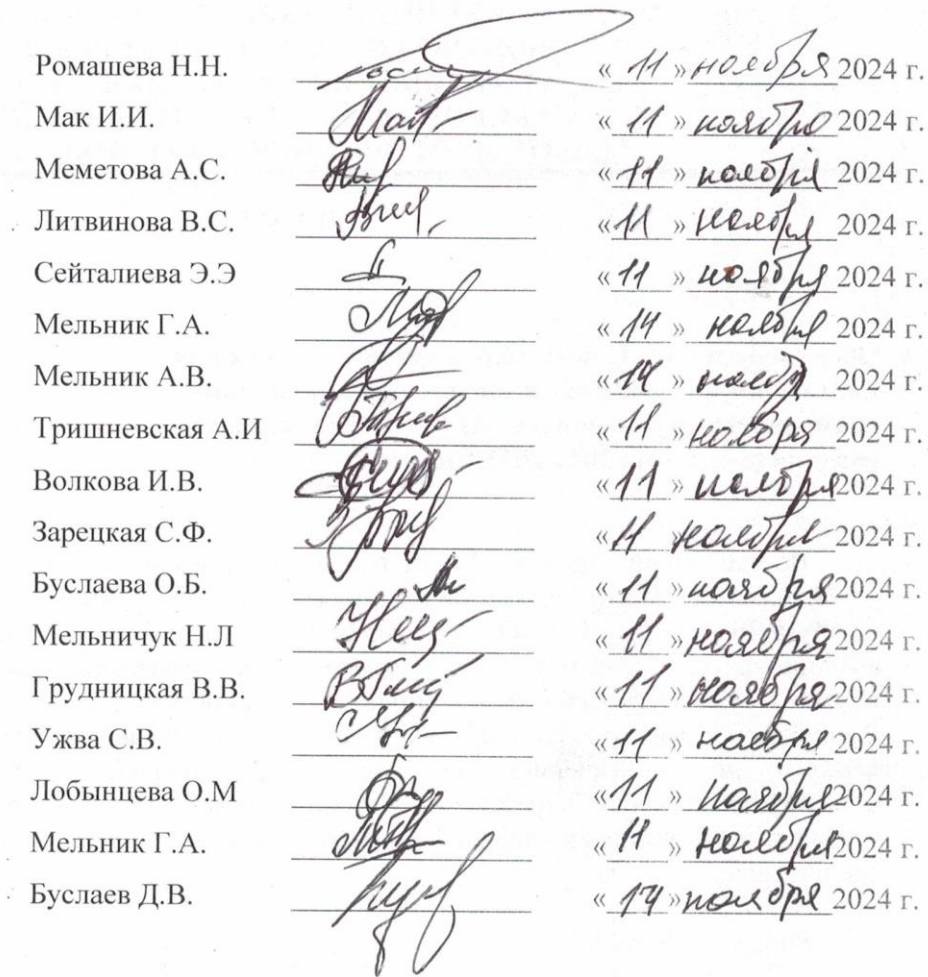 Ромашева Н.Н. « 11 » ноября 2024 г.
Мак И.И. « 11 » ноября 2024 г.
Меметова А.С. « 11 » ноября 2024 г.
Литвинова В.С. « 11 » ноября 2024 г.
Сейталиева Э.Э « 11 » ноября 2024 г.
Мельник Г.А. « 14 » ноября 2024 г.
Мельник А.В. « 14 » ноября 2024 г.
Тришневская А.И « 11 » ноября 2024 г.
Волкова И.В. « 11 » ноября 2024 г.
Зарецкая С.Ф. « 11 ноября 2024 г.
Буслаева О.Б. « 11 » ноября 2024 г.
Мельничук Н.Л « 11 » ноября 2024 г.
Грудницкая В.В. « 11 » ноября 2024 г.
Ужва С.В. « 11 » ноября 2024 г.
Лобынцева О.М « 11 » ноября 2024 г.
Мельник Г.А. « 11 » ноября 2024 г.
Буслаев Д.В. « 14 » ноября 2024 г.